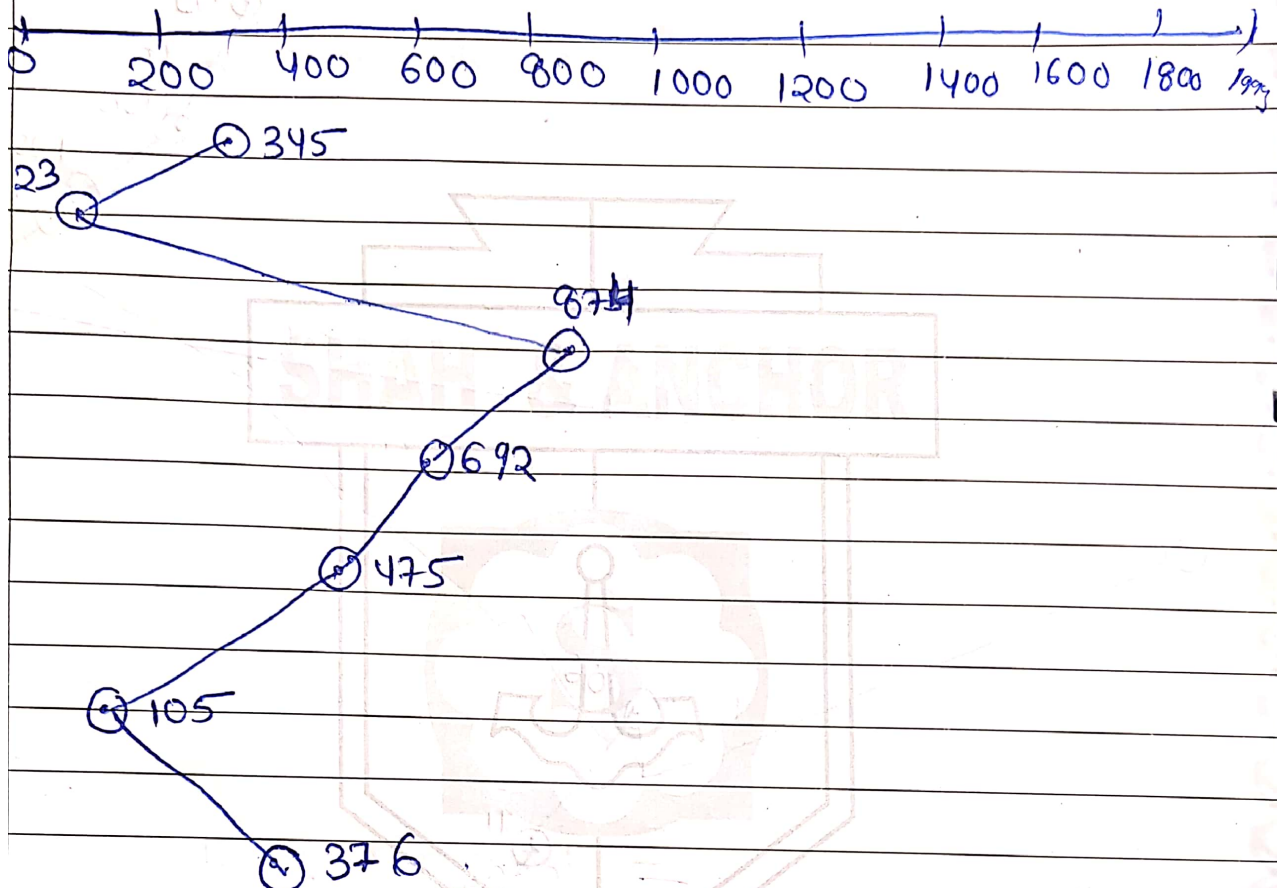 0 200 400 600 800 1000 1200 1400 1600 1800 1999
345
23
874
692
475
105
376
SHAH & ANCHOR